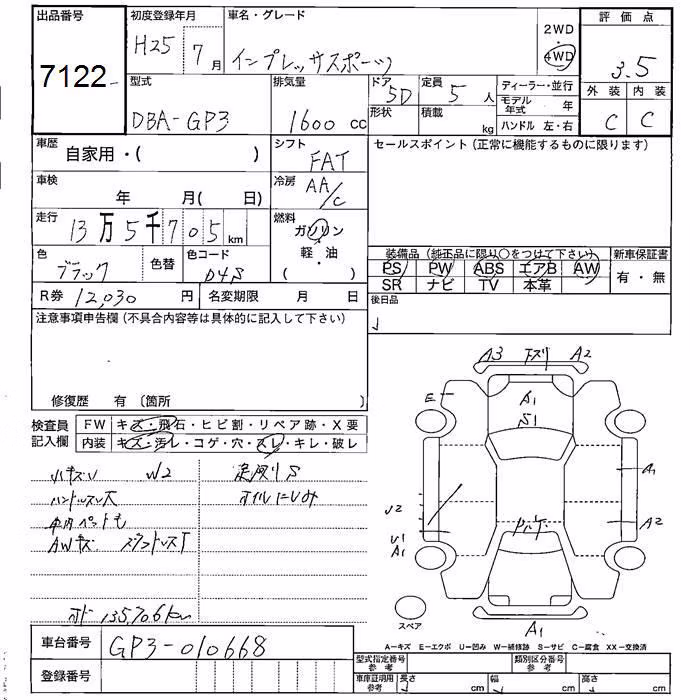 出品番号
7122
初度登録年月
H25年 7月
車名・グレード
インプレッサスポーツ
2WD
4WD
評価点
3.5
外装 内装
C C
型式
DBA-GP3
排気量
1600 cc
ドア 5D
形状
定員 5 人
積載 kg
ディーラー・並行
モデル年式 年
ハンドル 左・右
車歴
自家用・( )
シフト
FAT
セールスポイント (正常に機能するものに限ります)
車検
年 月( 日)
冷房
AA/C
走行
13万5千705km
燃料
ガソリン
軽・油
( )
色
ブラック
色替
色コード
D4S
装備品 (純正品に限り○をつけて下さい)
PS PW ABS エアB AW
SR ナビ TV 本革
新車保証書
有・無
R券 12,030 円
名変期限 月 日
後日品
注意事項申告欄 (不具合内容等は具体的に記入して下さい)
修復歴 有 〔箇所 〕
検査員
記入欄
FW キズ・飛石・ヒビ割・リペア跡・X要
内装 キズ・汚レ・コゲ・穴・スレ・キレ・破レ
小キズU W2
足廻りS
ハンドルスレ大
オイルにじみ
車内ペット毛
AWキズ
135,706km
A3 下ズリ A2
E
A1
S1
A1
U2
A2
U1
A1
A1
スペア
A-キズ E-エクボ U-凹み W-補修跡 S-サビ C-腐食 XX-交換済
車台番号
GP3-010668
登録番号
型式指定番号
参考
類別区分番号
参考
車庫証明用
参考
長さ cm
幅 cm
高さ cm